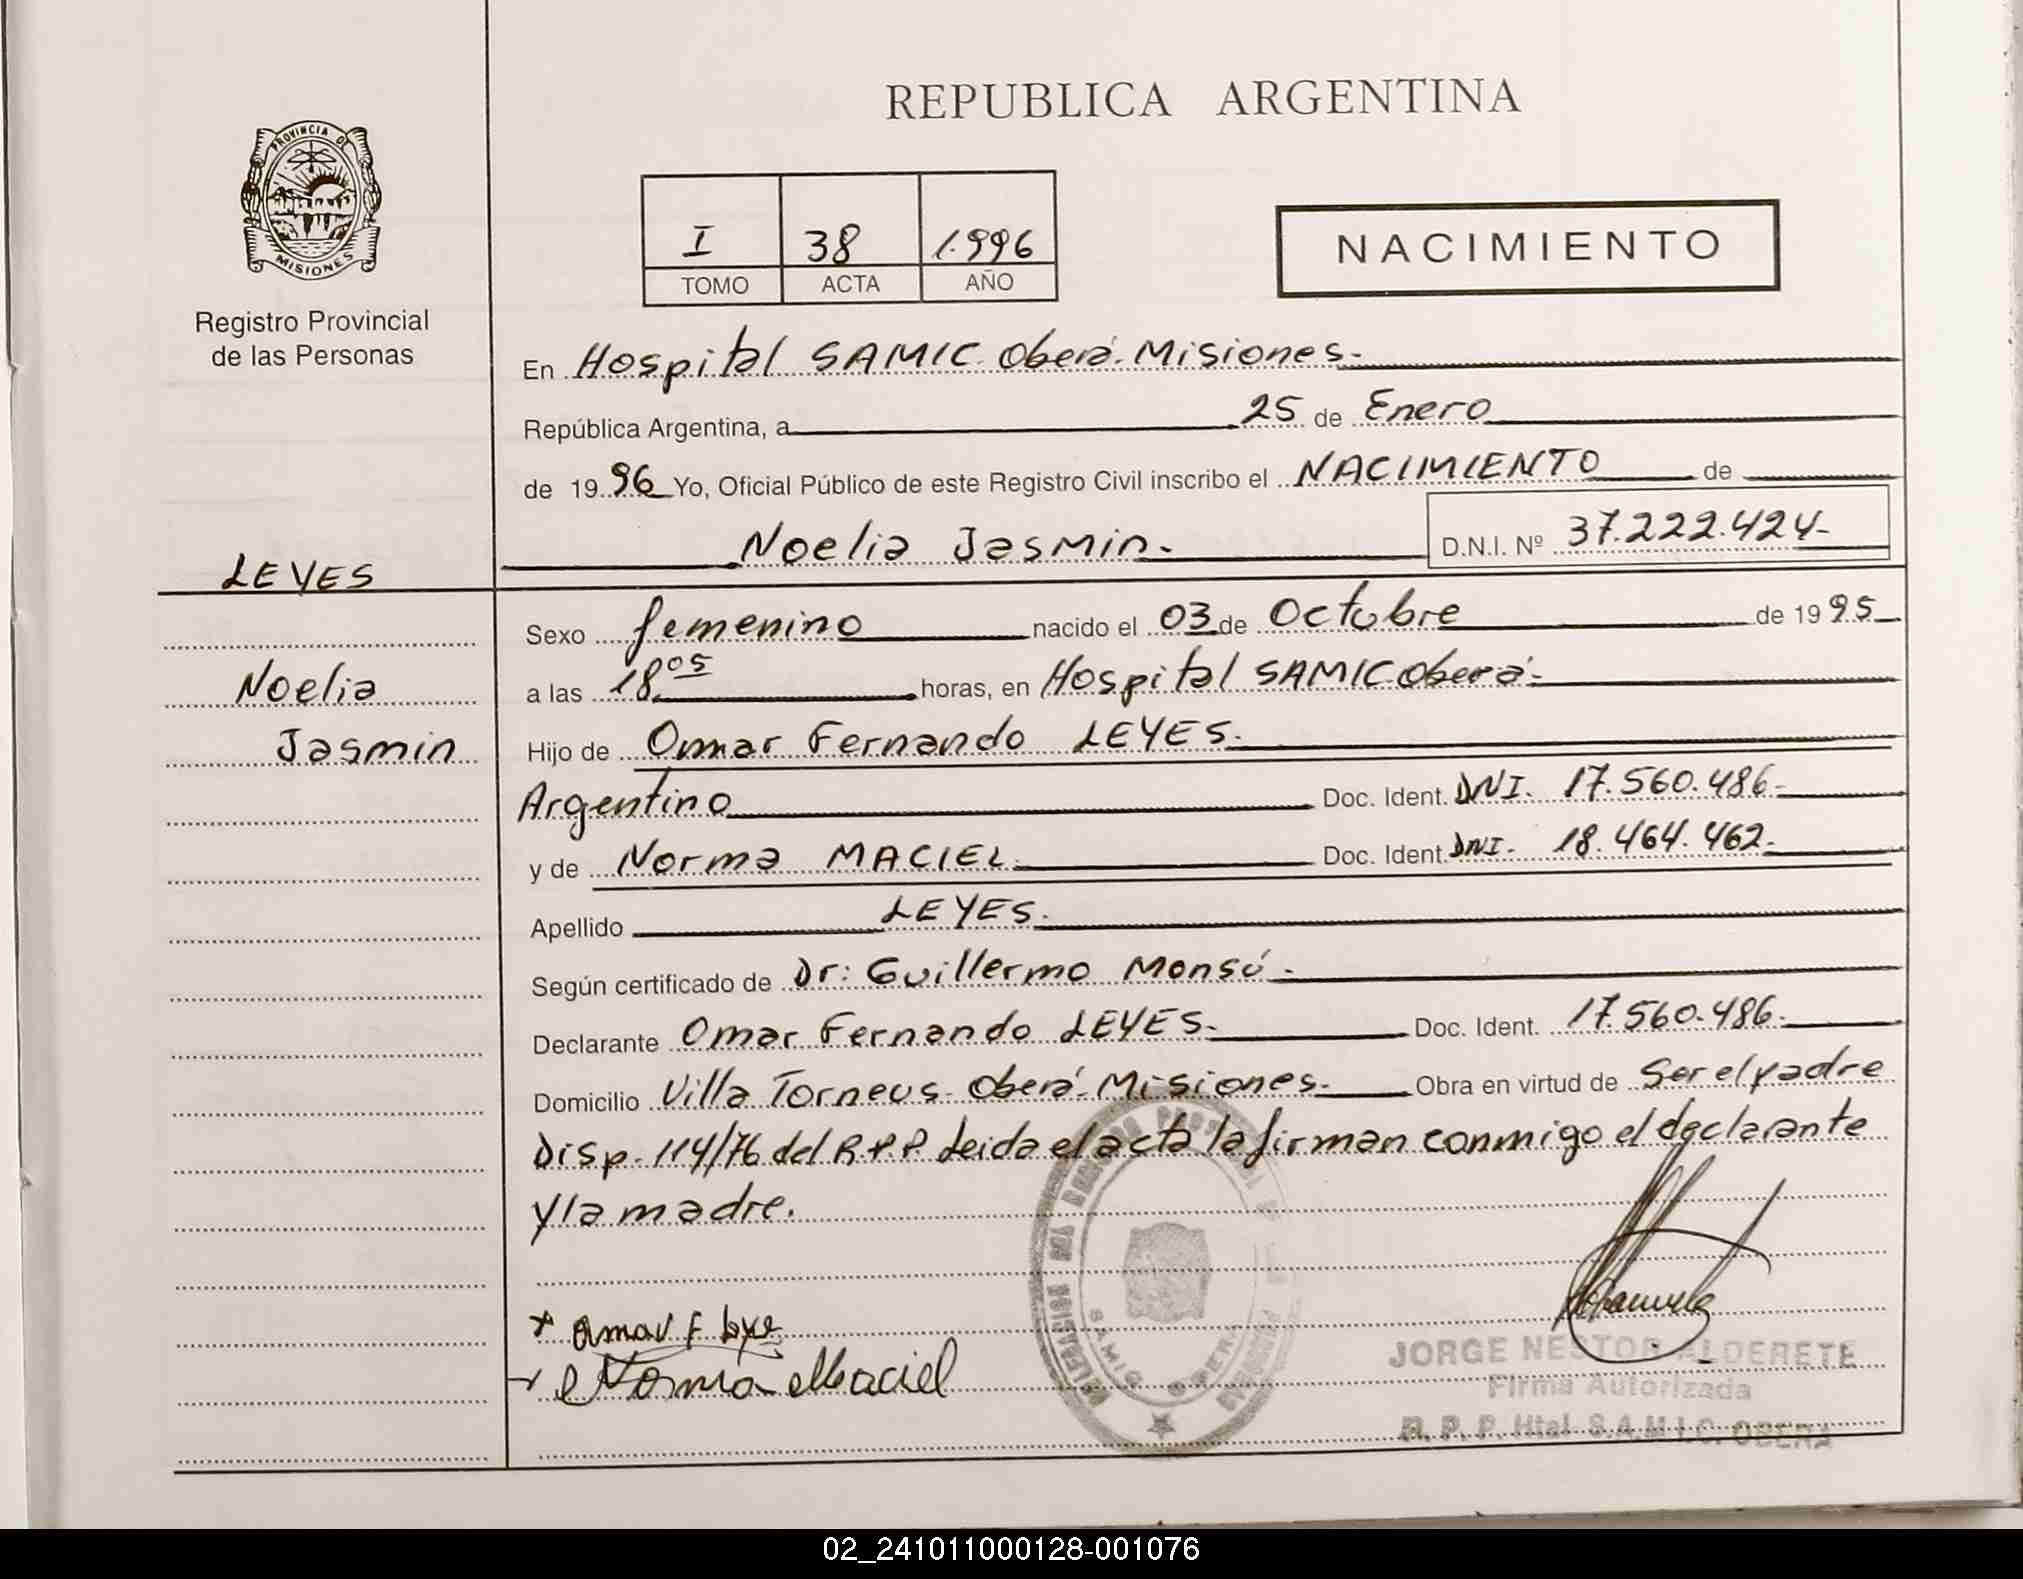 REPUBLICA ARGENTINA
PROVINCIA DE
MISIONES
Registro Provincial
de las Personas
I 38 1.996
TOMO ACTA AÑO
NACIMIENTO
En Hospital SAMIC Oberá-Misiones-
República Argentina, a 25 de Enero
de 1996 Yo, Oficial Público de este Registro Civil inscribo el NACIMIENTO de
Noelia Jasmin- D.N.I. Nº 37.222.424-
LEYES
Noelia
Jasmin
Sexo femenino nacido el 03 de Octubre de 1995
a las 18 05 horas, en Hospital SAMIC Oberá-
Hijo de Omar Fernando LEYES-
Argentino Doc. Ident. DNI. 17.560.486-
y de Norma MACIEL- Doc. Ident. DNI- 18.464.462-
Apellido LEYES-
Según certificado de Dr: Guillermo Monsó-
Declarante Omar Fernando LEYES- Doc. Ident. 17.560.486-
Domicilio Villa Torneus-Oberá-Misiones- Obra en virtud de Ser el padre
Disp. 114/76 del R.P.P. Leida el acta la firman conmigo el declarante
y la madre.
Omar F. Leye
Norma Maciel
SAMIC OBERA
JORGE NESTOR ALDERETE
Firma Autorizada
R. P. P. Htal S.A.M.I.C. OBERA
02_241011000128-001076